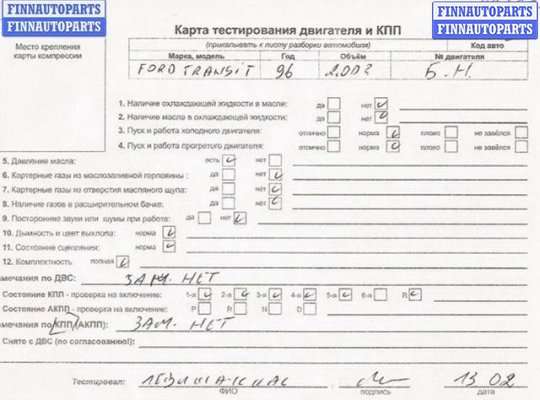 FINNAUTOPARTS
FINNAUTOPARTS
FINNAUTOPARTS
FINNAUTOPARTS
Место крепления
карты компрессии
Карта тестирования двигателя и КПП
(прикалывать к листу разборки автомобиля)
Код авто
Марка, модель Год Объём № двигателя
FORD TRANSIT 96 2.0 Б.Н.
1. Наличие охлаждающей жидкости в масле: да нет
2. Наличие масла в охлаждающей жидкости: да нет
3. Пуск и работа холодного двигателя: отлично норма плохо не завёлся
4. Пуск и работа прогретого двигателя: отлично норма плохо не завёлся
5. Давление масла: есть нет
6. Картерные газы из маслозаливной горловины: да нет
7. Картерные газы из отверстия масляного щупа: да нет
8. Наличие газов в расширительном бачке: да нет
9. Посторонние звуки или шумы при работе: да нет
10. Дымность и цвет выхлопа: норма
11. Состояние сцепления: норма
12. Комплектность полная
мечания по ДВС: ЗАМ. НЕТ
Состояние КПП - проверка на включение: 1-я 2-я 3-я 4-я 5-я 6-я R
Состояние АКПП - проверка на включение: P R N D
мечания по КПП (АКПП): ЗАМ. НЕТ
Снято с ДВС (по согласованию!):
Тестировал: 13 02
ФИО подпись дата